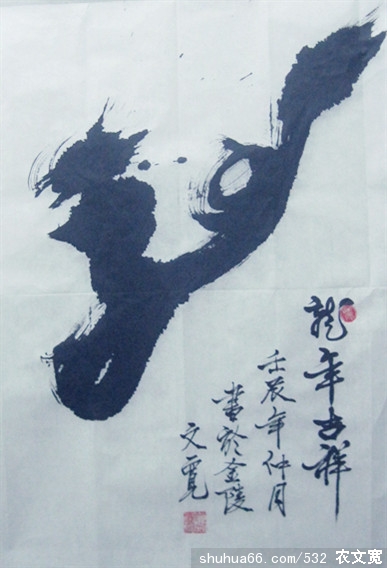 龍年吉祥
壬辰年仲月
書於金陵
文寬
shuhua66.com/532 农文宽